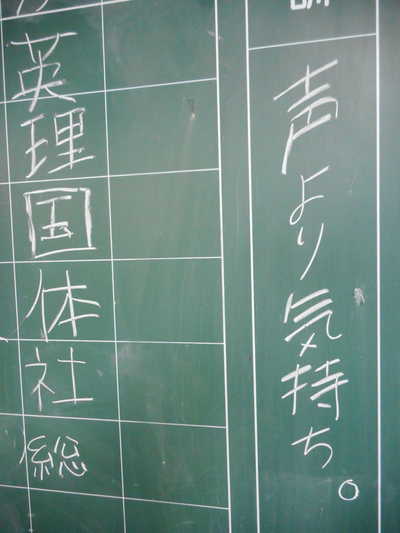 声より気持ち。
英
理
国
体
社
総